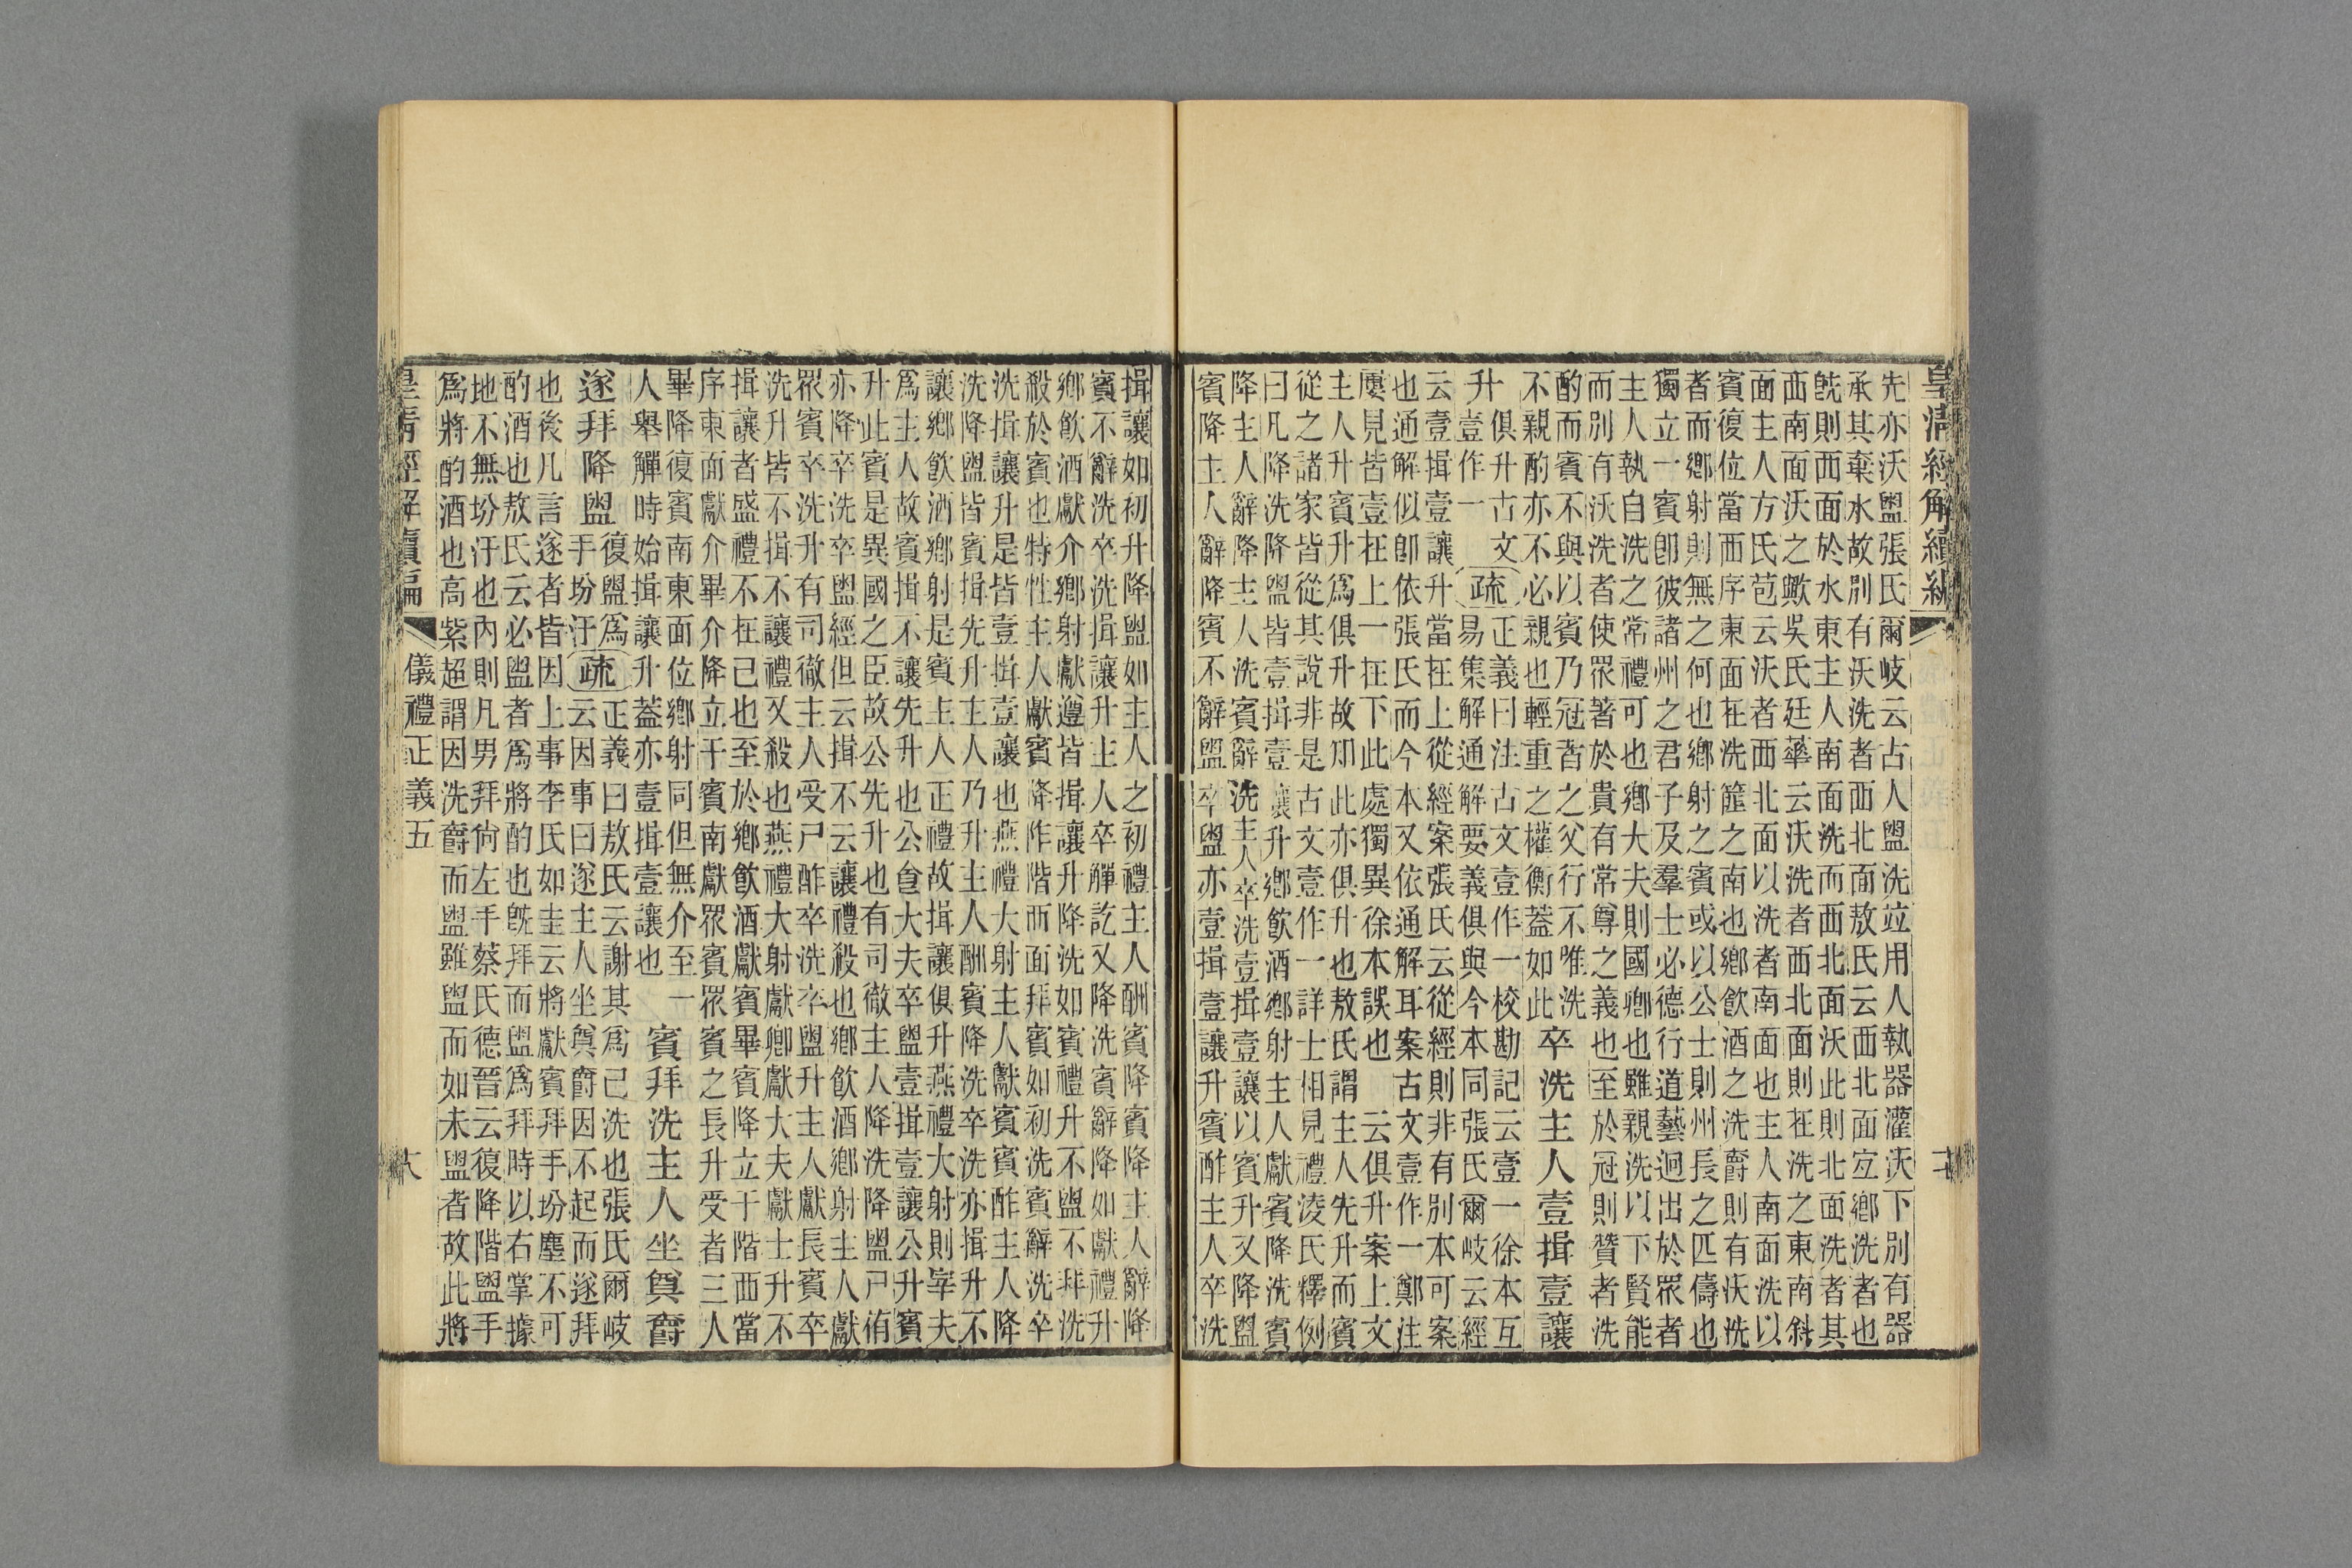 皇清經解續編 二
先亦沃盥張氏爾岐云古人盥洗竝用人執器灌沃下別有器
承其棄水故別有沃洗者西北面敖氏云西北面宐鄉洗者也
旣則西面於水東主人南面洗而西北面沃此則北面洗者其
西南面沃之歟吳氏廷華云沃洗者西北面則在洗之東南斜
面主人方氏苞云沃者西北面以洗者南面也主人南面洗以
賓復位當西序東面在洗篚之南也鄉飲酒之洗爵則有沃洗
者而鄉射則無之何也鄉射之賓或以公士則州長之匹儔也
獨立一賓卽彼諸州之君子及羣士必德行道藝迥出於眾者
主人執自洗之常禮可也鄉大夫則國卿也雖親洗以下賢能
而別有沃洗者使眾著於貴有常尊之義也至於冠則贊者洗
酌而賓不與以賓乃冠者之父行不唯洗
不親酌亦不必親也輕重之權衡蓋如此
卒洗主人壹揖壹讓
升
俱升古文
壹作一
疏
正義曰注古文壹作一校勘記云壹一徐本互
易集解通解要義俱與今本同張氏爾岐云經
云壹揖壹讓升當在上從經案張氏云從經則非有別本可案
也通解似卽依張氏而今本又依通解耳案古文壹作一鄭注
屢見皆壹在上一在下此處獨異徐本誤也 云俱升案上文
主人升賓升爲俱升故知此亦俱升也敖氏謂主人先升而賓
從之諸家皆從其說非是古文壹作一詳士相見禮淩氏釋例
曰凡降洗降盥皆壹揖壹讓升鄉飲酒鄉射主人獻賓降洗賓
降主人辭降主人洗賓辭洗主人卒洗壹揖壹讓以賓升又降盥
賓降主人辭降賓不辭盥卒盥亦壹揖壹讓升賓酢主人卒洗
揖讓如初升降盥如主人之初禮主人酬賓降賓降主人辭降
賓不辭洗卒洗揖讓升主人卒觶訖又降洗賓辭降如獻禮升
鄉飲酒獻介鄉射獻遵皆揖讓升降洗如賓禮升不盥不拜洗
殺於賓也特性主人獻賓降阼階而面拜賓如初洗賓辭洗卒
洗揖讓升是皆壹揖壹讓也燕禮大射主人獻賓賓酢主人降
洗降盥皆賓揖先升主人乃升主人酬賓降洗卒洗亦揖升不
讓鄉飲酒鄉射是賓主人正禮故揖讓俱升燕禮大射則宰夫
爲主人故賓揖不讓先升也公食大夫卒盥壹揖壹讓公升賓
升此賓是異國之臣故公先升也有司徹主人降洗降盥尸侑
亦降卒洗卒盥經但云揖不云讓禮殺也鄉飲酒鄉射主人獻
眾賓卒洗升有司徹主人受尸酢卒洗卒盥升主人獻長賓卒
洗升皆不揖不讓禮又殺也燕禮大射獻卿獻大夫獻士升不
揖讓者盛禮不在己也至於鄉飲酒獻賓畢賓降立于階西當
序東面獻介畢介降立于賓南獻眾賓眾賓之長升受者三人
畢降復賓南東面位鄉射同但無介至一
人舉觶時始揖讓升蓋亦壹揖壹讓也
賓拜洗主人坐奠爵
遂拜降盥
復盥爲
手坋汙
疏
正義曰敖氏云謝其爲己洗也張氏爾岐
云因事曰遂主人坐奠爵因不起而遂拜
也後凡言遂者皆因上事李氏如圭云將獻賓拜手坋塵不可
酌酒也敖氏云必盥者爲將酌也旣拜而盥爲拜時以右掌據
地不無坋汙也內則凡男拜尚左手蔡氏德晉云復降階盥手
爲將酌酒也高紫超謂因洗爵而盥雖盥而如未盥者故此將
皇清經解續編 儀禮正義五